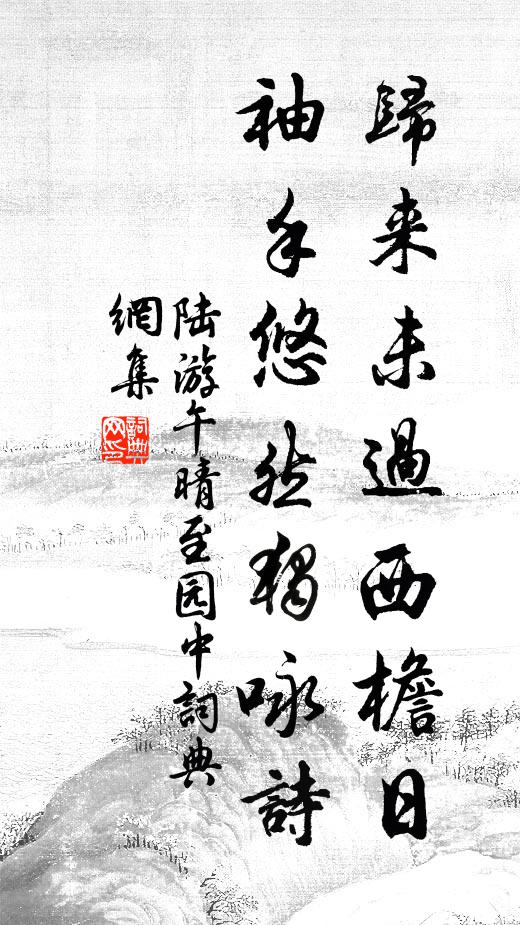 歸来未過西檐日
袖手悠然独咏詩
陆游午晴至园中詞典
網集
詞典
网印